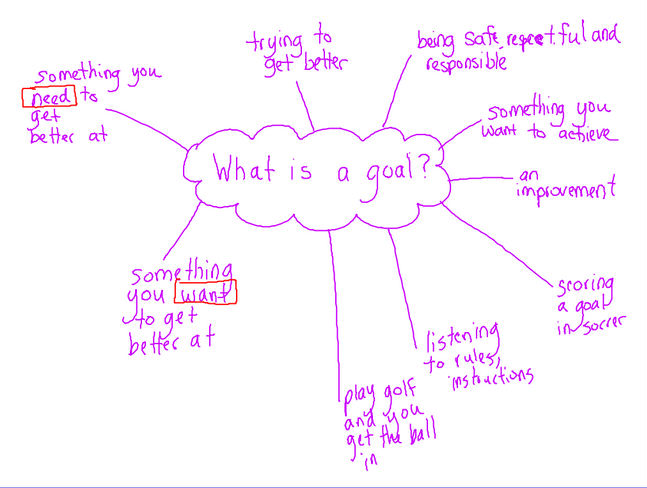 What is a goal?
something you
need to
get
better at
trying to
get better
being safe, respectful and
responsible
something you
want to achieve
an
improvement
scoring
a goal
in soccer
listening
to rules,
instructions
play golf
and you
get the ball
in
something
you want
to get
better at